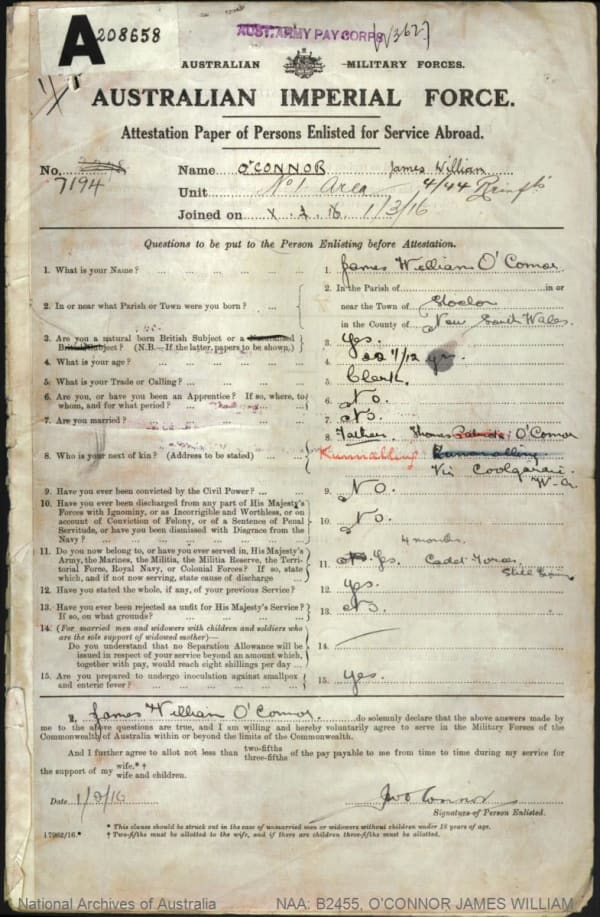 A 208658
AUST. ARMY PAY CORPS
AUSTRALIAN MILITARY FORCES.
AUSTRALIAN IMPERIAL FORCE.
Attestation Paper of Persons Enlisted for Service Abroad.
No. 7194 Name O'CONNOR James William
Unit No 1 Area 4/44 Reinfts
Joined on 1/3/16
Questions to be put to the Person Enlisting before Attestation.
1. What is your Name? ... 1. James William O'Connor
2. In or near what Parish or Town were you born? ... 2. In the Parish of in or
near the Town of
in the County of New South Wales.
3. Are you a natural born British Subject or a Naturalised British Subject? (N.B.—If the latter, papers to be shown.) 3. Yes.
4. What is your age? ... 4. 1/12 yrs.
5. What is your Trade or Calling? ... 5. Clerk.
6. Are you, or have you been an Apprentice? If so, where, to whom, and for what period? ... 6. No.
7. Are you married? ... 7. No.
8. Who is your next of kin? (Address to be stated) ... 8. Father. Thomas Patrick O'Connor
Kunnalling Kunnalling
Via Coolgardie.
W.A
9. Have you ever been convicted by the Civil Power? ... 9. No.
10. Have you ever been discharged from any part of His Majesty's Forces with Ignominy, or as Incorrigible and Worthless, or on account of Conviction of Felony, or of a Sentence of Penal Servitude, or have you been dismissed with Disgrace from the Navy? ... 10. No.
4 months.
11. Do you now belong to, or have you ever served in, His Majesty's Army, the Marines, the Militia, the Militia Reserve, the Territorial Force, Royal Navy, or Colonial Forces? If so, state which, and if not now serving, state cause of discharge 11. No Yes. Cadet Force
Still
12. Have you stated the whole, if any, of your previous Service? 12. Yes.
13. Have you ever been rejected as unfit for His Majesty's Service? If so, on what grounds? 13. No.
14. (For married men and widowers with children and soldiers who are the sole support of widowed mother)—
Do you understand that no Separation Allowance will be issued in respect of your service beyond an amount which, together with pay, would reach eight shillings per day ... 14.
15. Are you prepared to undergo inoculation against smallpox and enteric fever? ... 15. Yes.
I, James William O'Connor do solemnly declare that the above answers made by
me to the above questions are true, and I am willing and hereby voluntarily agree to serve in the Military Forces of the
Commonwealth of Australia within or beyond the limits of the Commonwealth.
And I further agree to allot not less than two-fifths three-fifths of the pay payable to me from time to time during my service for
the support of my wife.*† wife and children.
Date 1/2/16 JW O'Connor
Signature of Person Enlisted.
* This clause should be struck out in the case of unmarried men or widowers without children under 18 years of age.
17962/16.* † Two-fifths must be allotted to the wife, and if there are children three-fifths must be allotted.
National Archives of Australia NAA: B2455, O'CONNOR JAMES WILLIAM